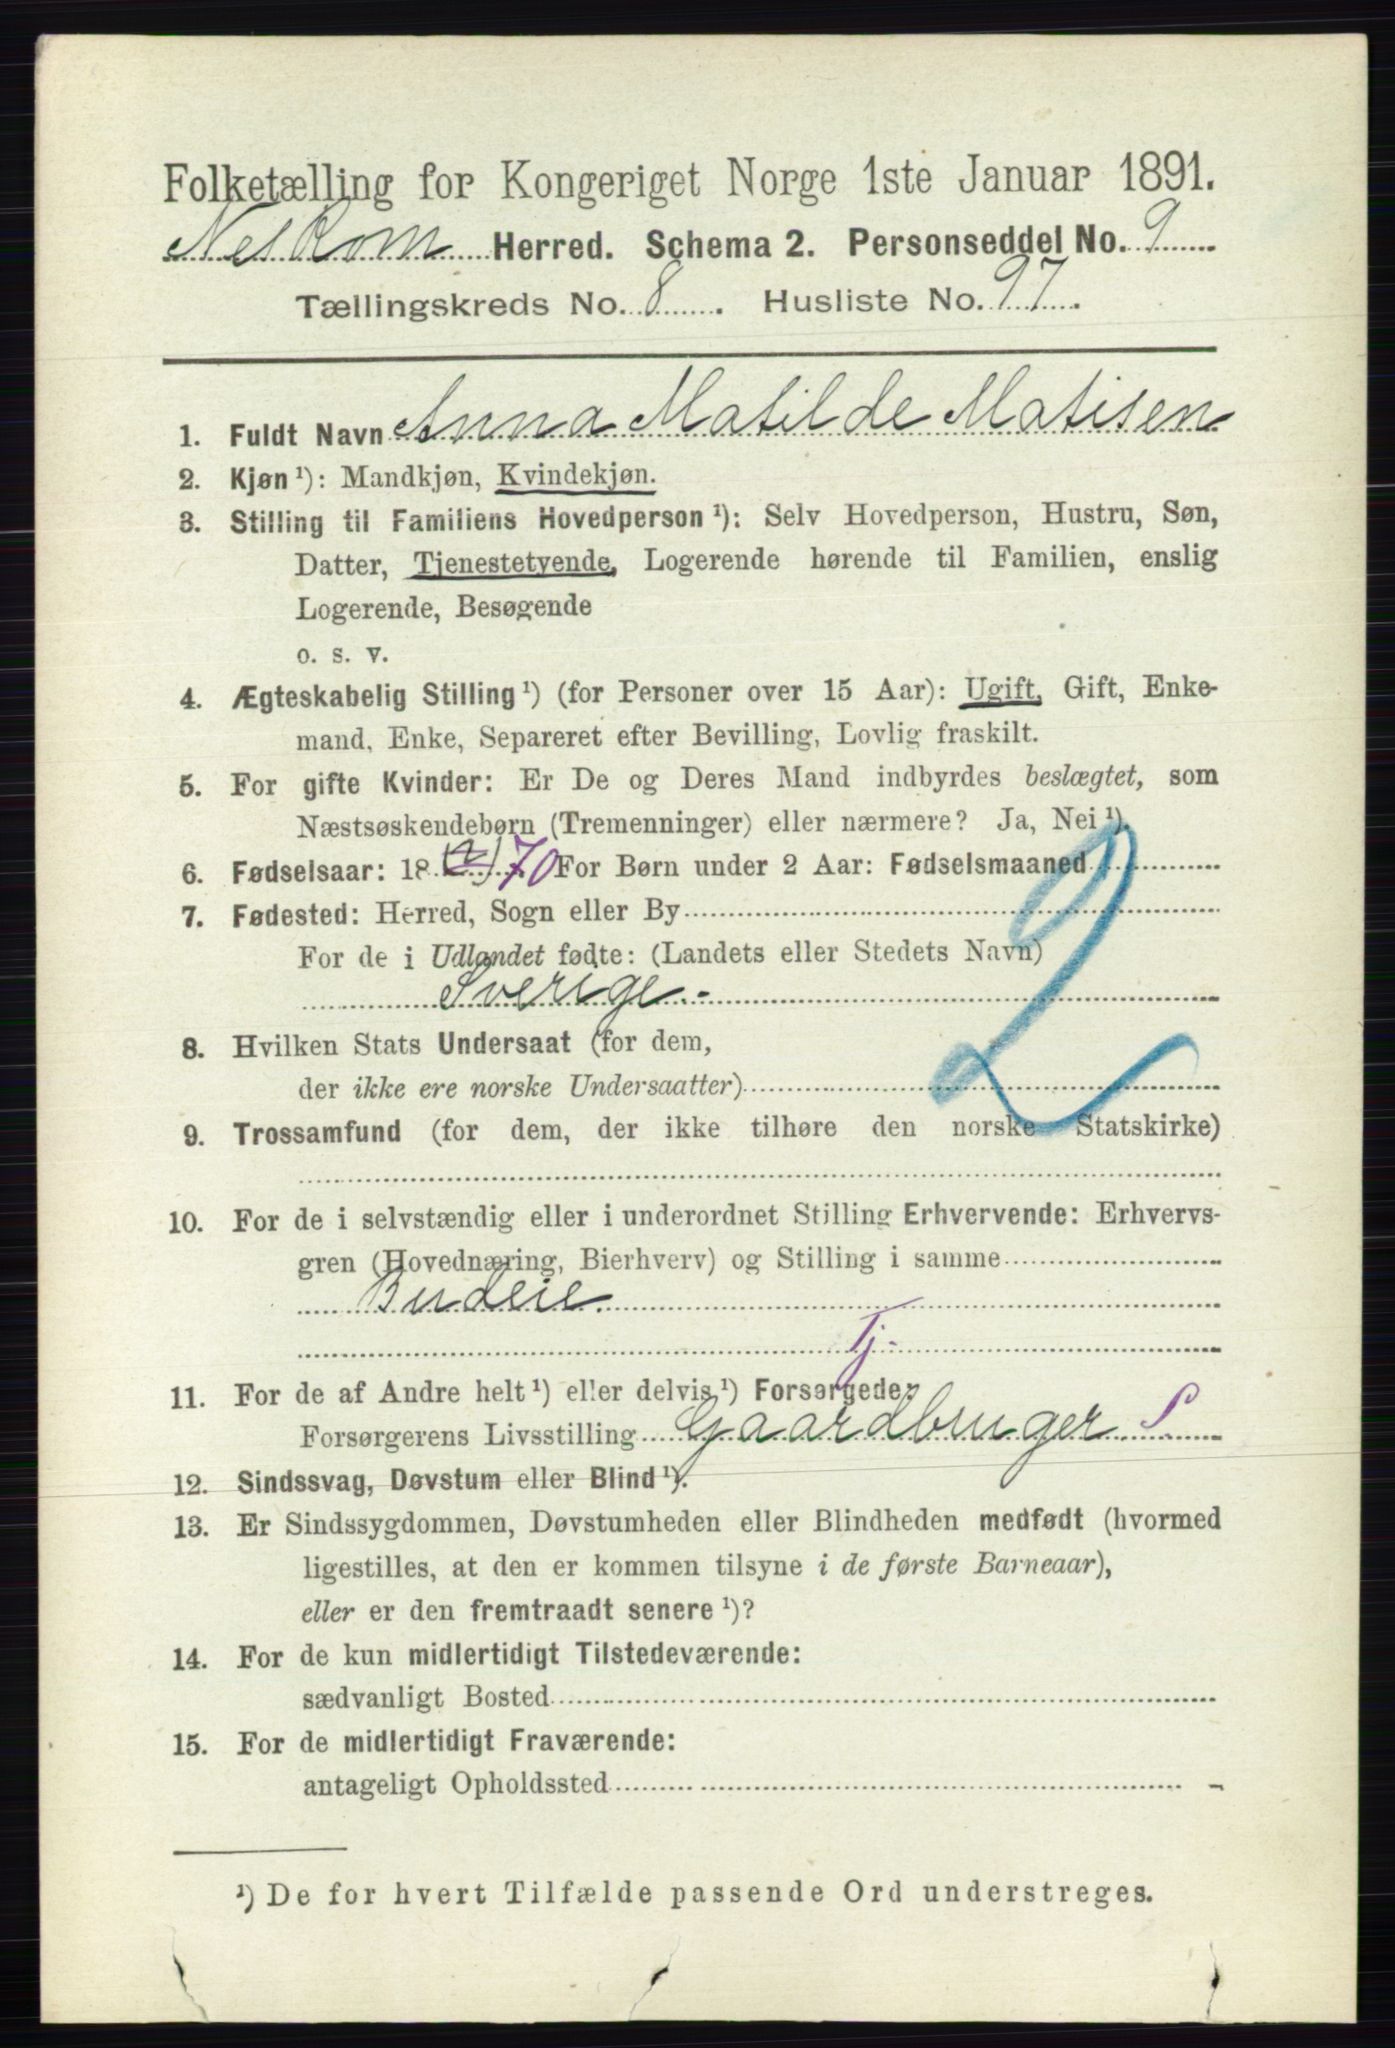 Folketælling for Kongeriget Norge 1ste Januar 1891.
Herred. Schema 2. Personseddel No. 9
Tællingskreds No. 8. Husliste No. 97.
1. Fuldt Navn Anna Matilde Matisen
2. Kjøn ¹): Mandkjøn, Kvindekjøn.
3. Stilling til Familiens Hovedperson ¹): Selv Hovedperson, Hustru, Søn,
Datter, Tjenestetyende, Logerende hørende til Familien, enslig
Logerende, Besøgende
o. s. v.
4. Ægteskabelig Stilling ¹) (for Personer over 15 Aar): Ugift, Gift, Enke-
mand, Enke, Separeret efter Bevilling, Lovlig fraskilt.
5. For gifte Kvinder: Er De og Deres Mand indbyrdes beslægtet, som
Næstsøskendebørn (Tremenninger) eller nærmere? Ja, Nei ¹).
6. Fødselsaar: 18 70 For Børn under 2 Aar: Fødselsmaaned
7. Fødested: Herred, Sogn eller By
For de i Udlandet fødte: (Landets eller Stedets Navn)
Sverige.-
2
8. Hvilken Stats Undersaat (for dem,
der ikke ere norske Undersaatter)
9. Trossamfund (for dem, der ikke tilhøre den norske Statskirke)
10. For de i selvstændig eller i underordnet Stilling Erhvervende: Erhvervs-
gren (Hovednæring, Bierhverv) og Stilling i samme
Budeie.
Tj.
11. For de af Andre helt ¹) eller delvis ¹) Forsørgede:
Forsørgerens Livsstilling Gaardbruger S
12. Sindssvag, Døvstum eller Blind ¹).
13. Er Sindssygdommen, Døvstumheden eller Blindheden medfødt (hvormed
ligestilles, at den er kommen tilsyne i de første Barneaar),
eller er den fremtraadt senere ¹)?
14. For de kun midlertidigt Tilstedeværende:
sædvanligt Bosted
15. For de midlertidigt Fraværende:
antageligt Opholdssted
¹) De for hvert Tilfælde passende Ord understreges.